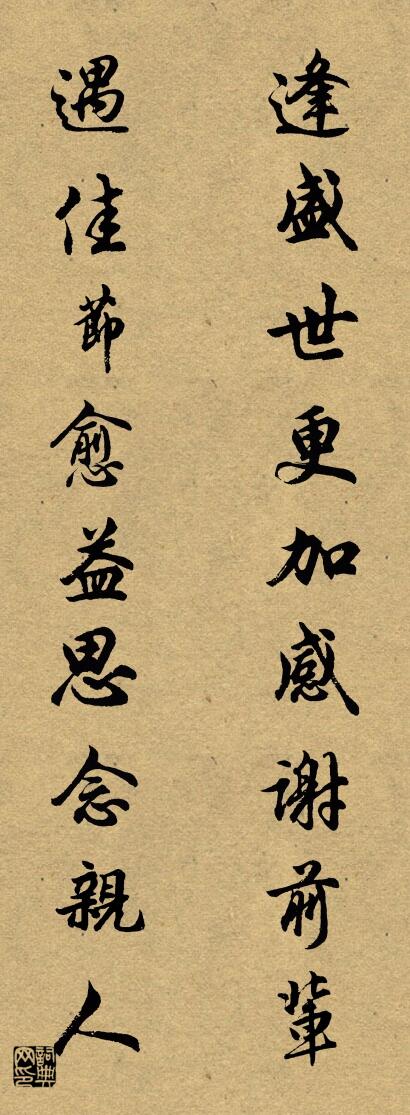 逢盛世更加感谢前輩
遇佳節愈益思念親人
詞典网印